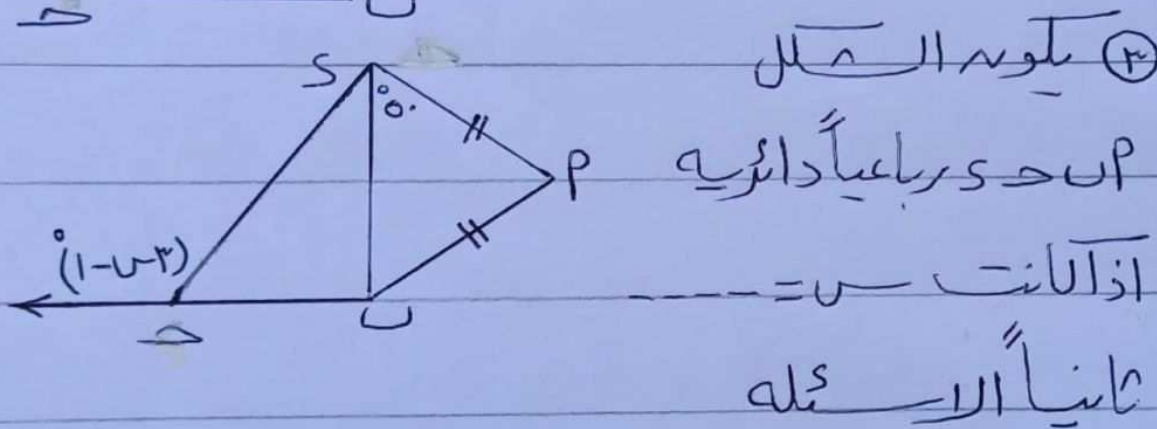 حـ ب
٣ يكون الشكل
أ ب حـ د رباعياً دائرياً
اذا كانت س = ----
ثانياً الاسئله
د
٥٠°
أ
(٣س-١)°
ب
حـ